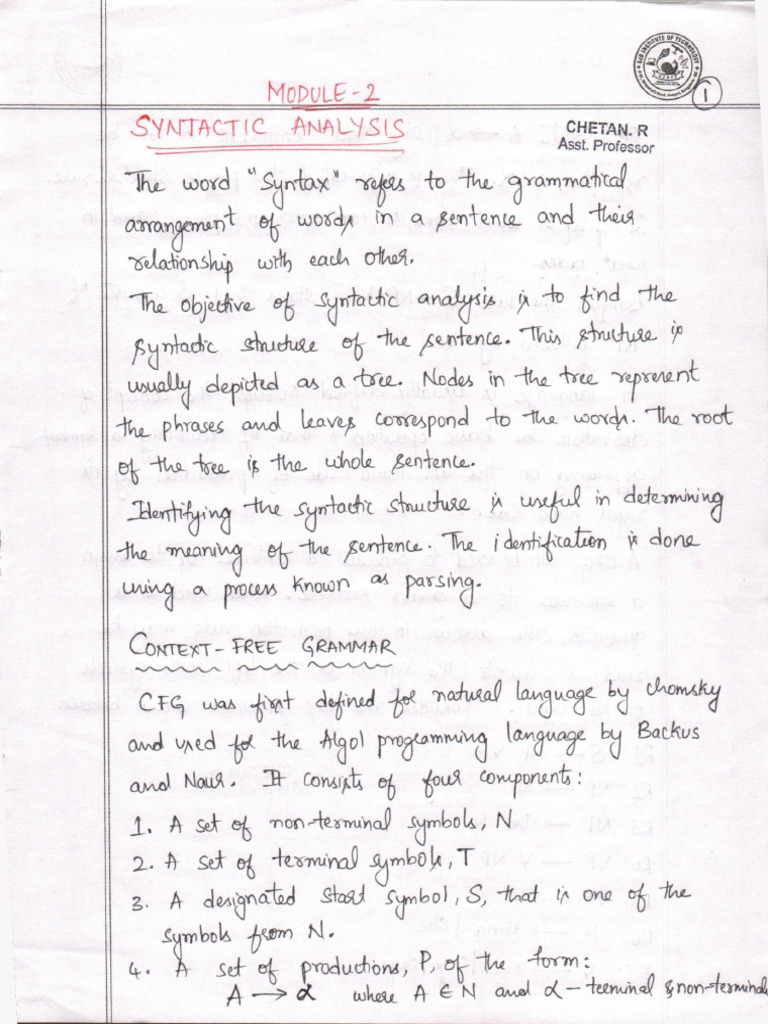 SJB INSTITUTE OF TECHNOLOGY
1
MODULE-2
SYNTACTIC ANALYSIS
CHETAN. R
Asst. Professor
The word "Syntax" refers to the grammatical
arrangement of words in a sentence and their
relationship with each other.
The objective of syntactic analysis is to find the
syntactic structure of the sentence. This structure is
usually depicted as a tree. Nodes in the tree represent
the phrases and leaves correspond to the words. The root
of the tree is the whole sentence.
Identifying the syntactic structure is useful in determining
the meaning of the sentence. The identification is done
using a process known as parsing.
CONTEXT-FREE GRAMMAR
CFG was first defined for natural language by Chomsky
and used for the Algol programming language by Backus
and Naur. It consists of four components:
1. A set of non-terminal symbols, N
2. A set of terminal symbols, T
3. A designated start symbol, S, that is one of the
symbols from N.
4. A set of productions, P, of the form:
A → α where A ∈ N and α - terminal & non-terminals